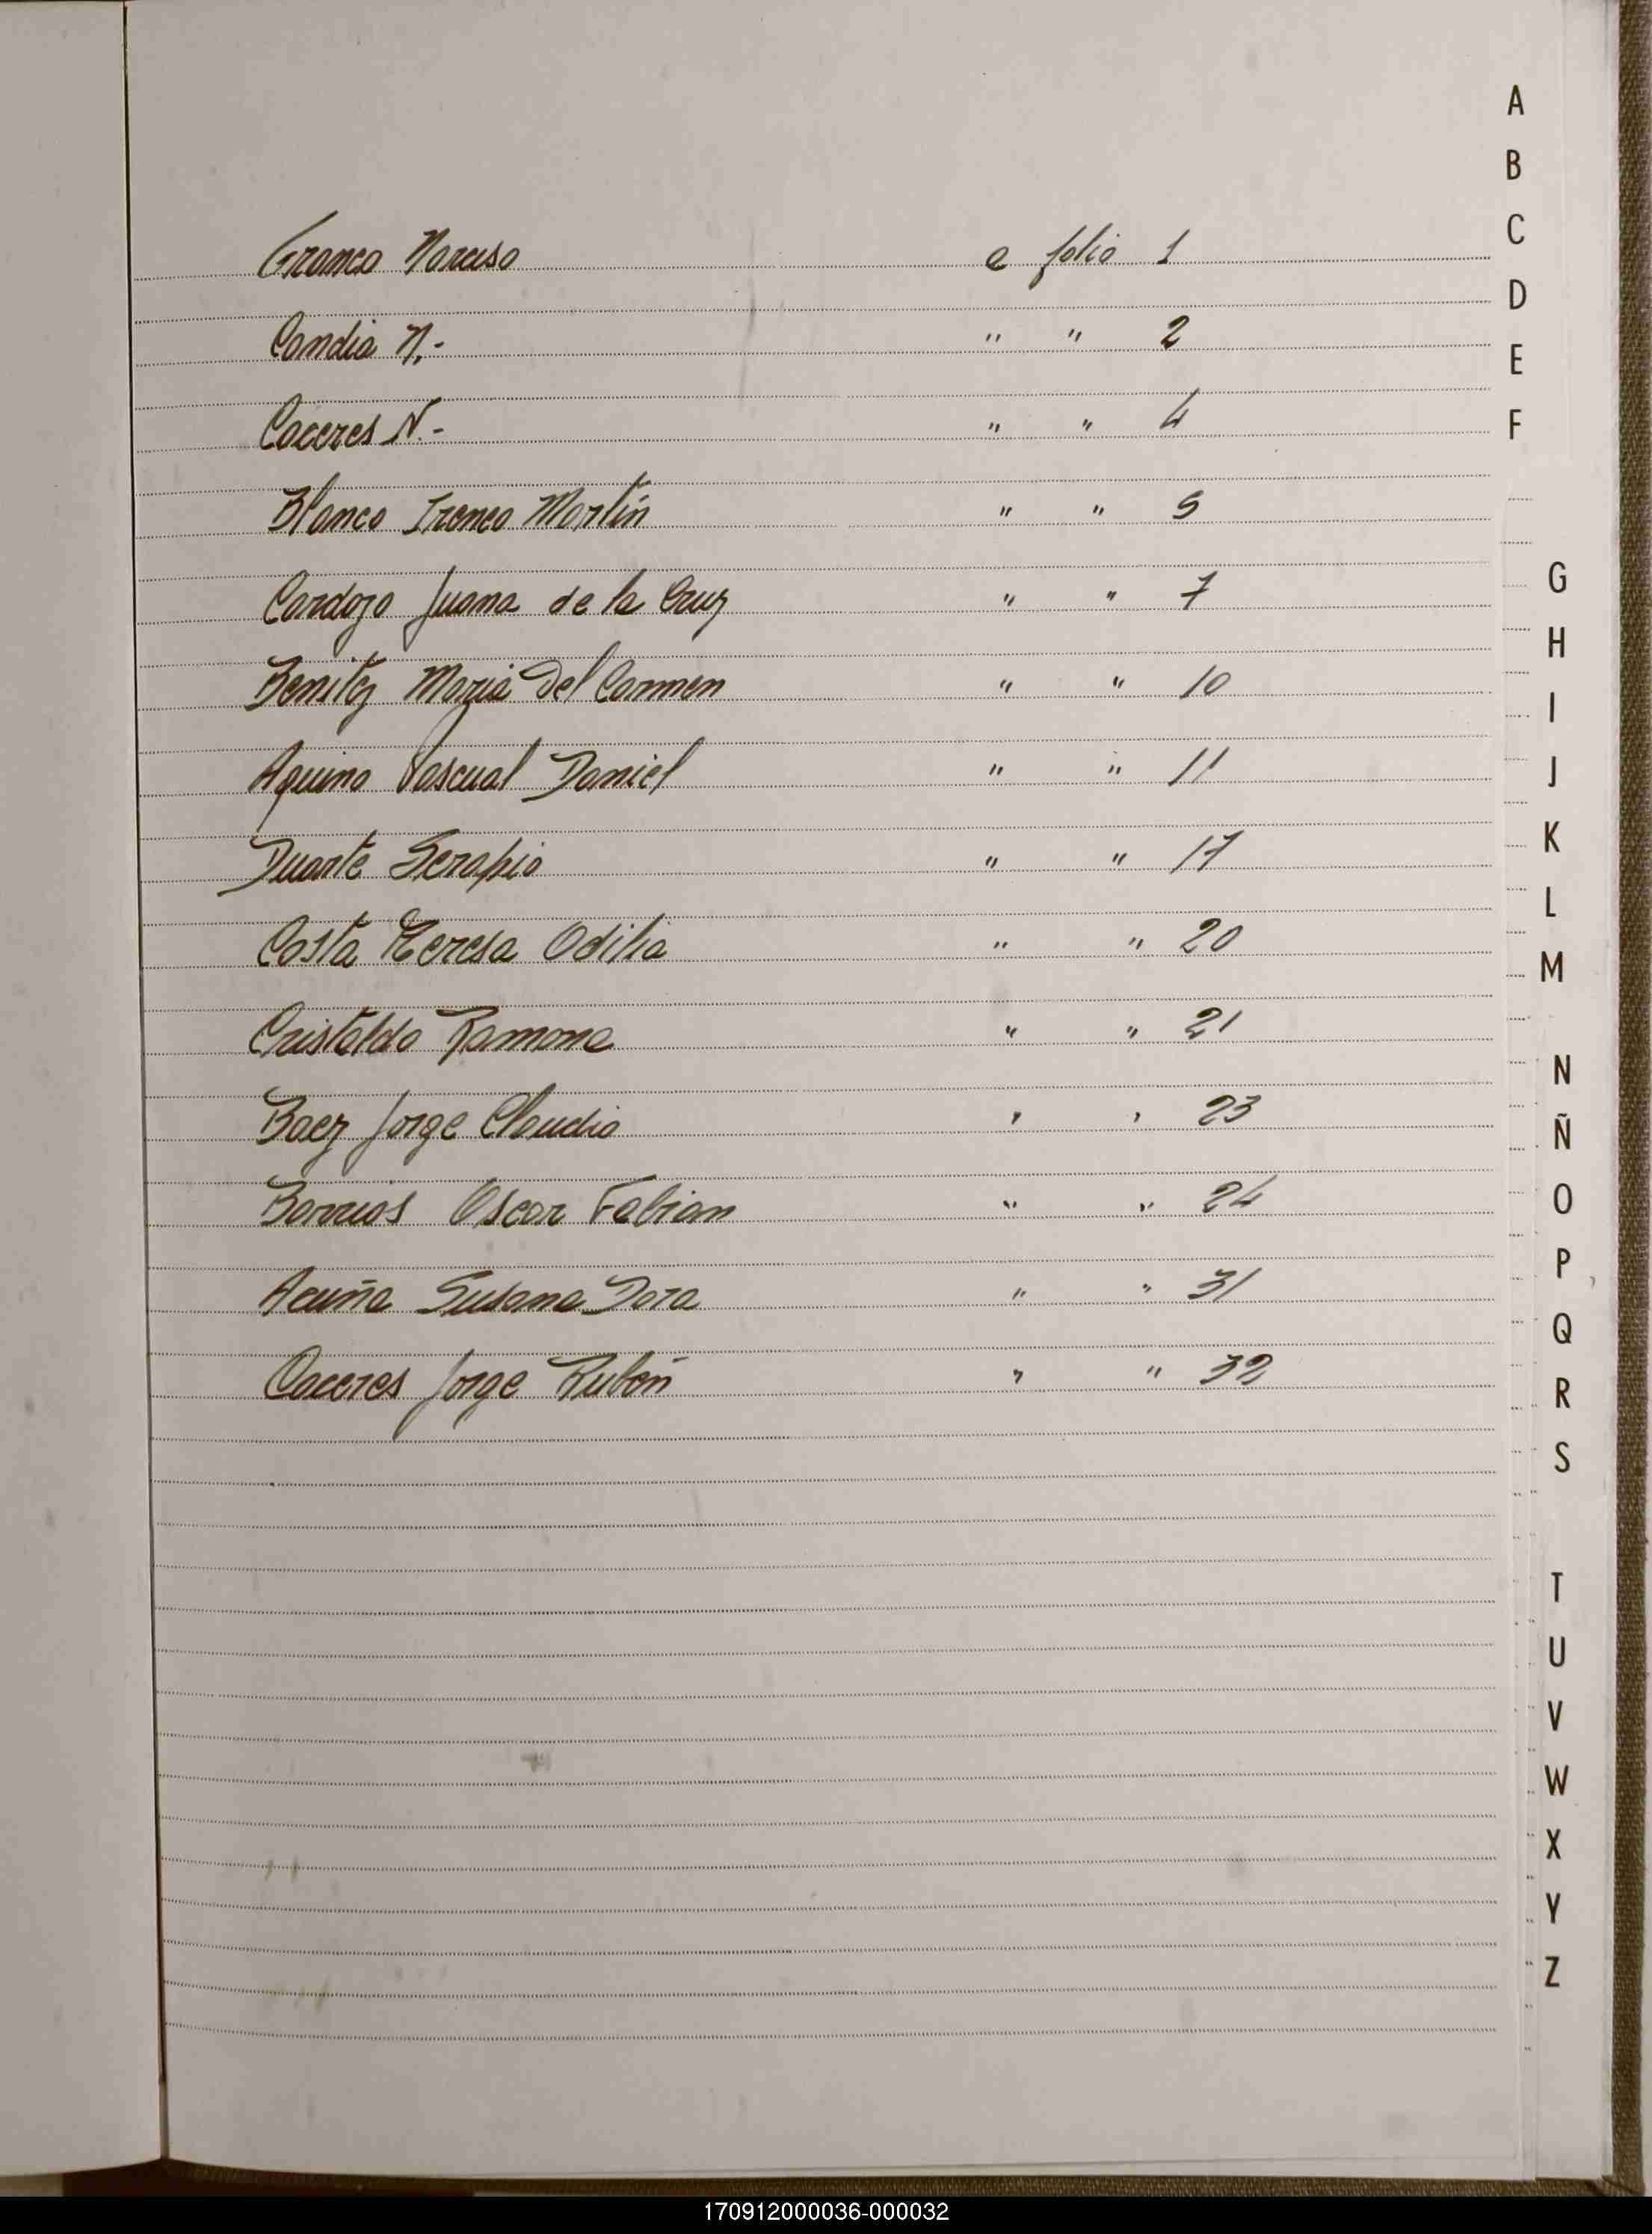 A
B
C
D
E
F
Franco Narciso a folio 1
Candia N.- " " 2
Caceres N.- " " 4
Blanco Ireneo Martín " " 5
Cardozo Juana de la Cruz " " 7
Benitez Maria Del Carmen " " 10
Aquino Pascual Daniel " " 11
Duarte Serapio " " 17
Costa Teresa Odilia " " 20
Cristaldo Ramona " " 21
Baez Jorge Claudio " " 23
Barrios Oscar Fabian " " 24
Acuña Susana Dora " " 31
Caceres Jorge Rubén " " 32
G
H
I
J
K
L
M
N
Ñ
O
P
Q
R
S
T
U
V
W
X
Y
Z
170912000036-000032